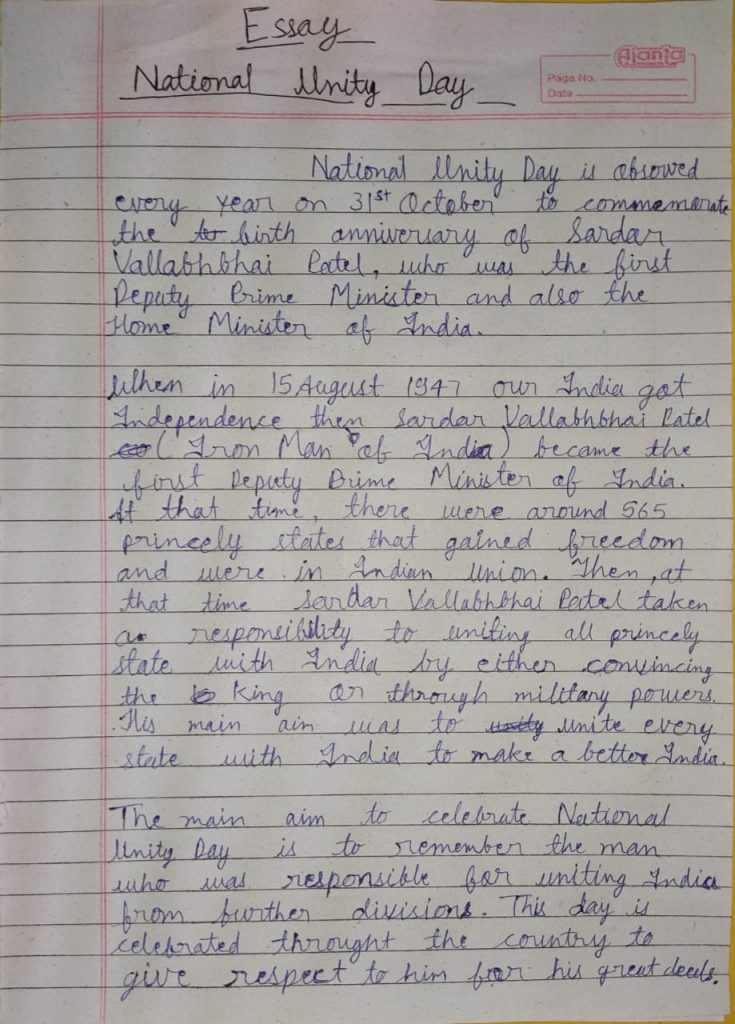 Essay
National Unity Day
Ajanta
Page No.
Date
National Unity Day is obsowed
every year on 31st October to commemorate
the birth anniversary of Sardar
Vallabhbhai Patel, who was the first
Deputy Prime Minister and also the
Home Minister of India.
When in 15 August 1947 our India got
Independence then Sardar Vallabhbhai Patel
(Iron Man of India) became the
first Deputy Prime Minister of India.
At that time, there were around 565
princely states that gained freedom
and were in Indian union. Then, at
that time Sardar Vallabhbhai Patel taken
a responsibility to uniting all princely
state with India by either convincing
the king or through military powers.
His main aim was to unite every
state with India to make a better India.
The main aim to celebrate National
Unity Day is to remember the man
who was responsible for uniting India
from further divisions. This day is
celebrated throught the country to
give respect to him for his great deeds.